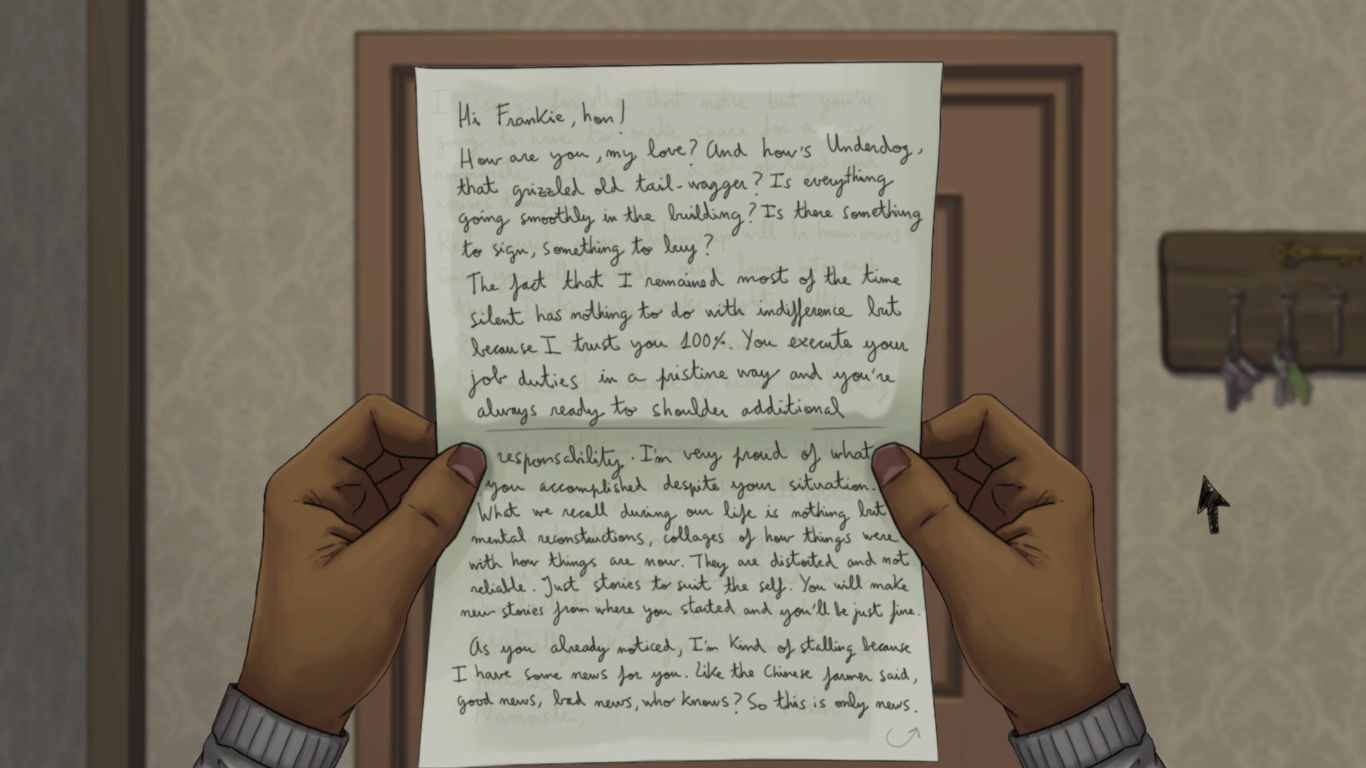 Hi Frankie, hon!
How are you, my love? And how's Underdog,
that grizzled old tail-wagger? Is everything
going smoothly in the building? Is there something
to sign, something to buy?
The fact that I remained most of the time
silent has nothing to do with indifference but
because I trust you 100%. You execute your
job duties in a pristine way and you're
always ready to shoulder additional
responsability. I'm very proud of what
you accomplished despite your situation.
What we recall during our life is nothing but
mental reconstructions, collages of how things were
with how things are now. They are distorted and not
reliable. Just stories to suit the self. You will make
new stories from where you started and you'll be just fine.
As you already noticed, I'm kind of stalling because
I have some news for you. Like the Chinese farmer said,
good news, bad news, who knows? So this is only news.